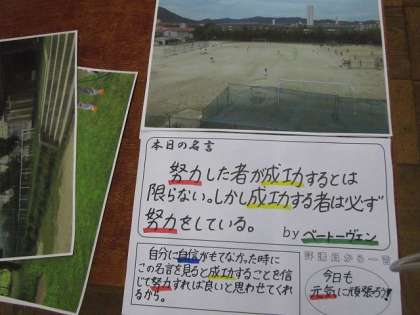 本日の名言
努力した者が成功するとは
限らない。しかし成功する者は必ず
努力をしている。
by ベートーヴェン
自分に自信がもてなった時に
この名言を見ると成功することを信
じて努力すれば良いと思わせてくれ
るから。
今日も
元気に頑張ろう!!